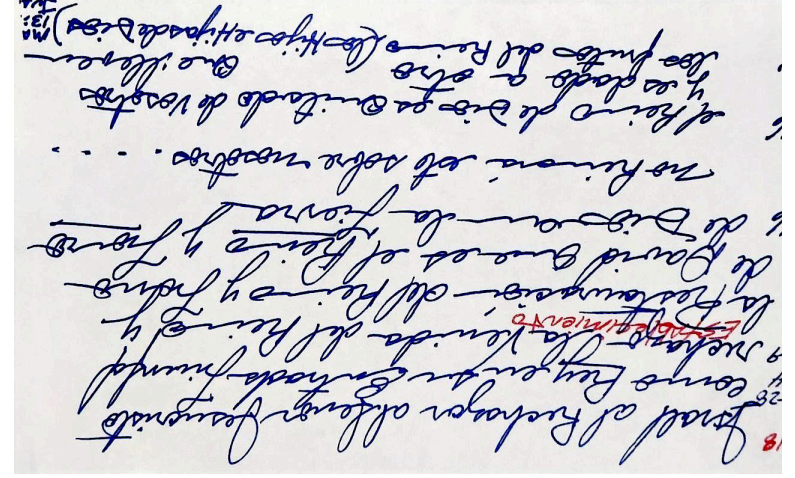 Israel al Rechazar al Señor Jesucristo
como Rey, en su Entrada Triunfal
rechazó la Venida del Reino y
ESTABLECIMIENTO
la Restauración del Reino y Trono
de David que es el Reino y Trono
de Dios en la Tierra,
no Reinará este sobre nosotros . . . .
el Reino de Dios es Quitado de vosotros
y es dado a otro Que lleven
los frutos del Reino (los Hijos e Hijas de Dios)